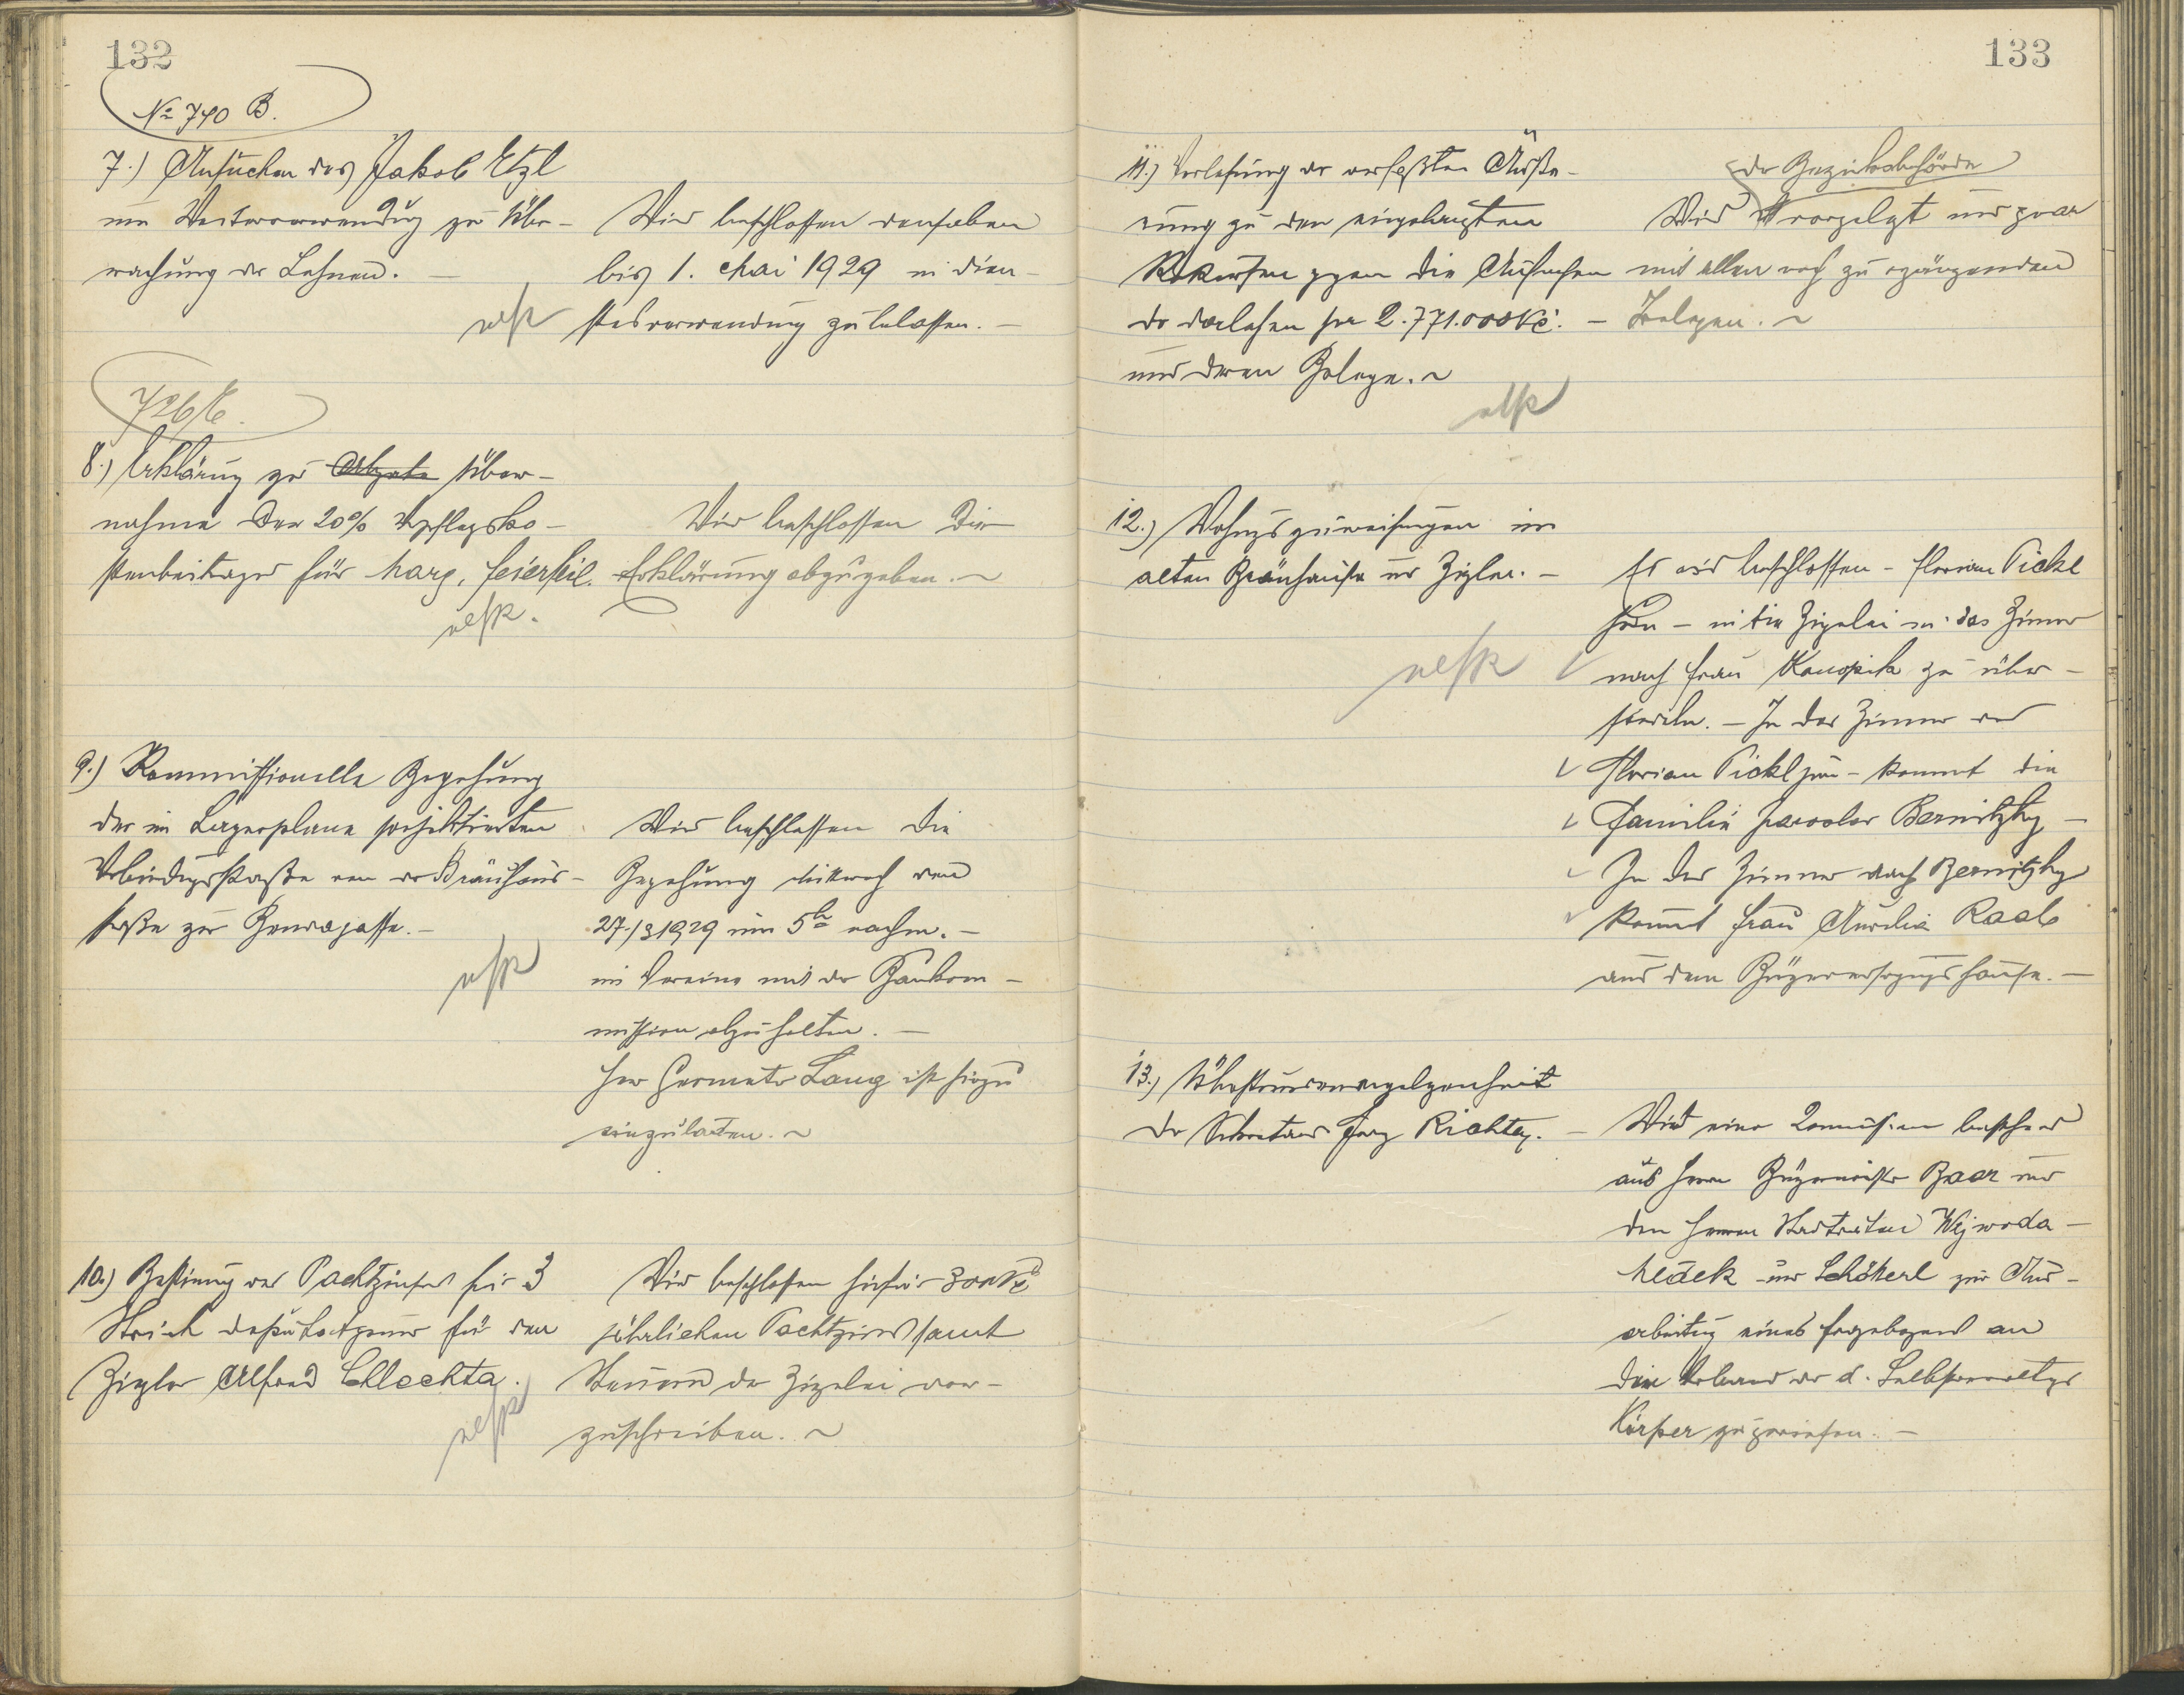 132
№ 740 B.
7.) Ansuchen des Jakob Etzl
um Weiterverwendug zu Über-
wachung der Lehnen. —
Wird beschlossen denselben
bis 1. Mai 1929 in Dien-
stesverwendung zu belassen. —
726/6.
8.) Erklärung zur Abgabe Über-
nahme der 20% Verpflegsko-
stenbeitrages für Marg. Feierfeil.
Wird beschlossen die
Erklärung abzugeben. ~
9.) Kommissionelle Begehung
der im Lagerplane projektierten
Verbindugsstraße von der Bräuhaus-
straße zur Gasse. —
Wird beschlossen die
Begehung Mittwoch den
27./3 1929 um 5h nachm. —
im Vereine mit der Baukom-
mission abzuhalten. —
Herr Geometer Lang ist hiezu
einzuladen. ~
10.) Bestimung des Pachtzinses für 3
Strich Deputatgrund für den
Ziegler Alfred Chlechta.
Wird beschlossen hiefür 300 Kč
jährlichen Pachtzins samt
Steuern der Ziegelei vor-
zuschreiben. ~
133
11.) Verlesung der verfaßten Äuße-
rung zu den eingebrachten
Rekursen gegen die Aufnahme
der Darlehen per 2.771.000 Kč. —
und deren Belege. ~
der Bezirksbehörde
Wird vorgelegt und zwar
mit allen noch zu ergänzenden
Belegen. ~
12.) Wohnugszuweisungen im
alten Bräuhause und Ziegler. —
Es wird beschlossen – Florian Pickl
– in die Ziegelei in das Zimmer
nach Frau Konopik zu über-
siedeln. — In das Zimmer des
Florian Pickl jun – kommt die
Familie Jaroslav Bernitzky —
In das Zimmer nach Bernitzky
kommt Frau Aurelia Raab
aus dem Bürgerversorgugshause. —
13.)
des Sekretärs Franz Richter. —
Wird eine Komission bestehend
aus Herrn Bürgermeister Baar und
den Herren Stadträten Wejwoda —
Hlaek und Schöterl zur Aus-
arbeitug eines Fragebogens an
den Verband der d. Selbstverwaltgs
Körper zugewiesen. —